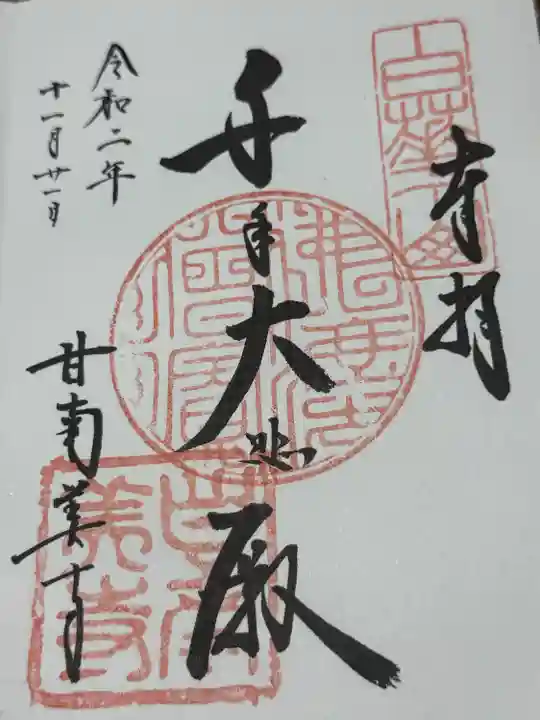 奉拝
千手大悲殿
令和二年
十一月廿一日
甘南美寺